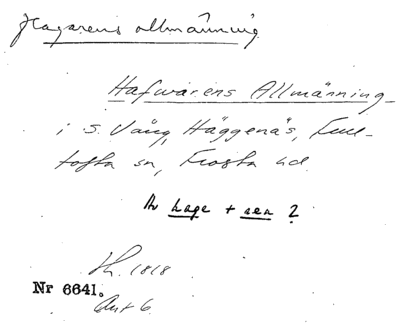 Hagarens allmänning
Hafwarens Allmänning
i S. Vång, Häggenäs, Ful-
tofta sn, Frosta hd.
Av hage + ren ?
Lh. 1818
Nr 6641.
Akt 6.